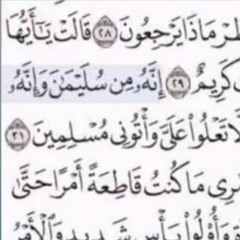 ظر ماذا يرجعون ٢٨ قالت يٰٓأيها
كريم ٢٩ إنهۥ من سليمٰن وإنهۥ
لا تعلوا علي وأتوني مسلمين ٣١
رى ما كنت قاطعة أمرا حتى
قوة وأولوا بأس شديد والأمر